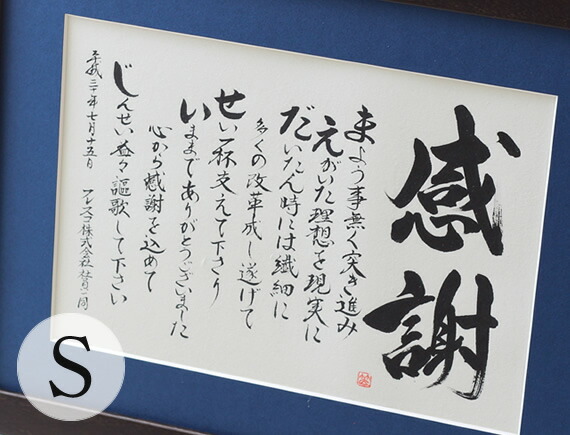 感謝
まよう事無く突き進み
えがいた理想を現実に
だいたん時には繊細に
多くの改革成し遂げて
せい一杯支えて下さり
いままでありがとうございました
心から感謝を込めて
じんせい益々謳歌して下さい
平成三十年七月十五日 アレスコ株式会社 社員一同
S